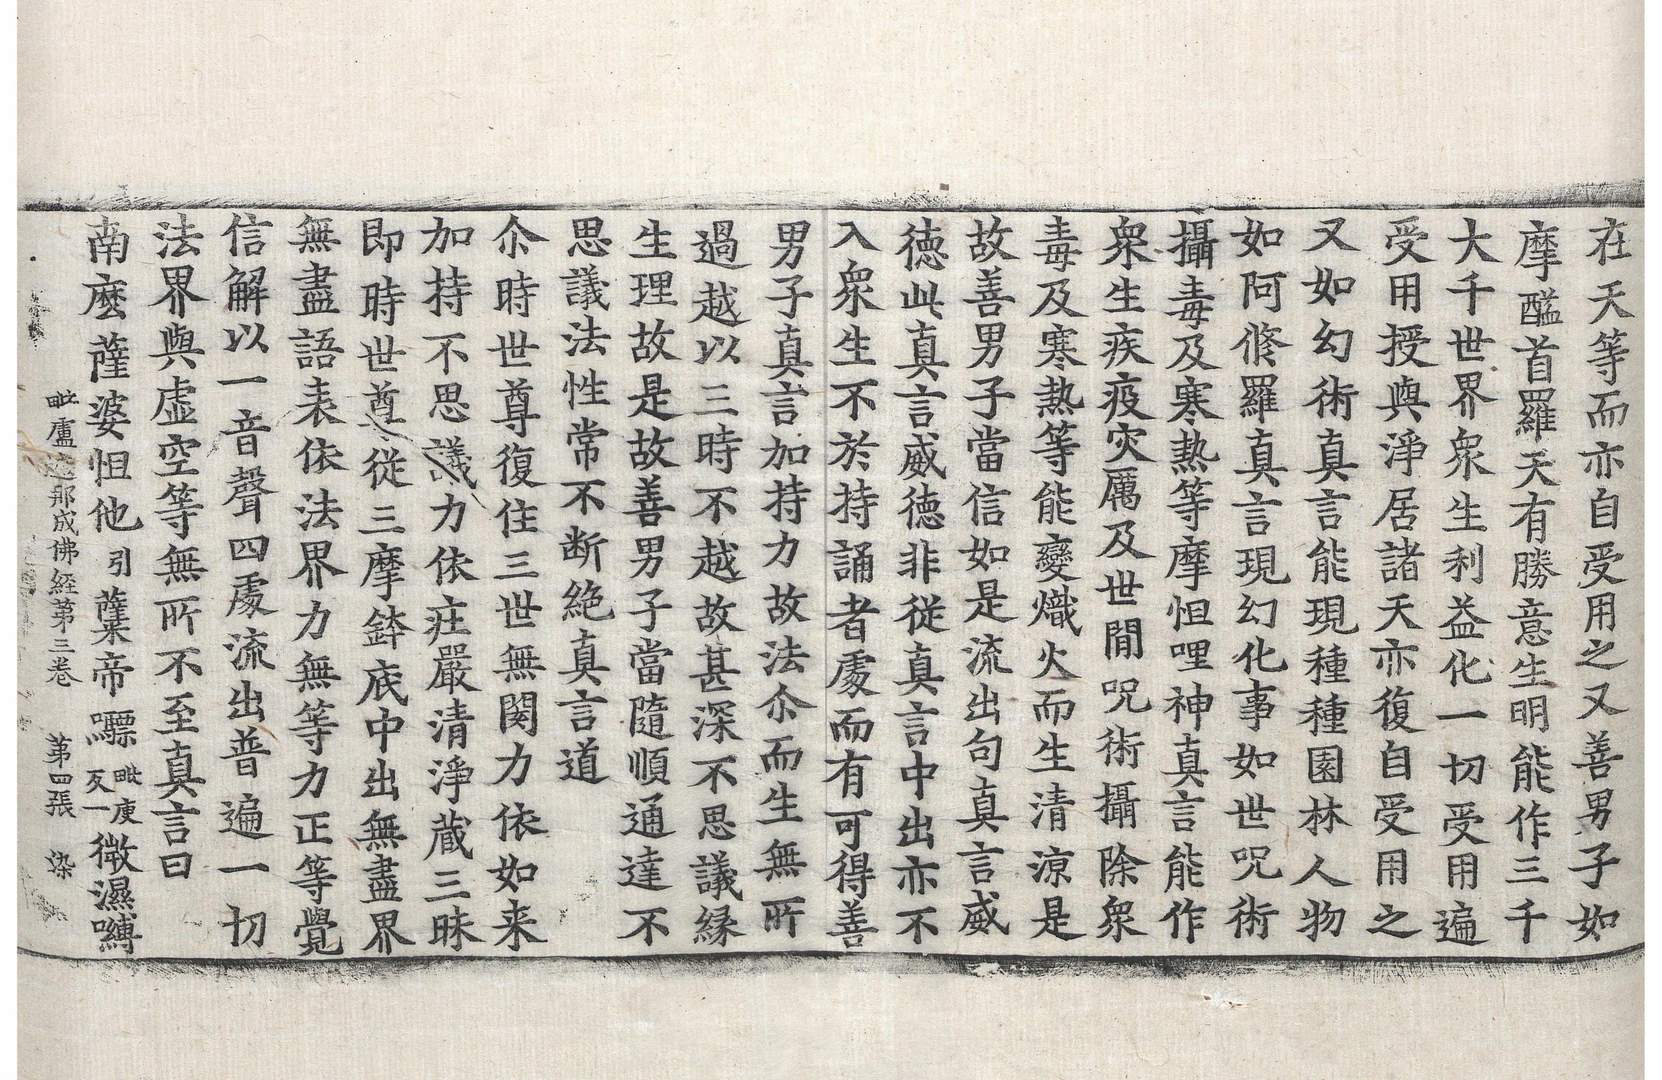 在天等而亦自受用之又善男子如
摩醯首羅天有勝意生明能作三千
大千世界衆生利益化一切受用遍
受用授與淨居諸天亦復自受用之
又如幻術真言能現種種園林人物
如阿脩羅真言現幻化事如世呪術
攝毒及寒熱等摩怛哩神真言能作
衆生疾疫灾厲及世間呪術攝除衆
毒及寒熱等能變熾火而生清涼是
故善男子當信如是流出句真言威
德此真言威德非從真言中出亦不
入衆生不於持誦者處而有可得善
男子真言加持力故法尒而生無所
過越以三時不越故甚深不思議緣
生理故是故善男子當隨順通達不
思議法性常不断絶真言道
尒時世尊復住三世無閡力依如来
加持不思議力依疘嚴清淨蔵三昧
即時世尊從三摩鉢底中出無盡界
無盡語表依法界力無等力正等覺
信解以一音聲四處流出普遍一切
法界與虚空等無所不至真言曰
南麽薩婆怛他引蘖帝嘌毗庾反一微濕嚩
毗盧遮那成佛經第三卷　第四張　染